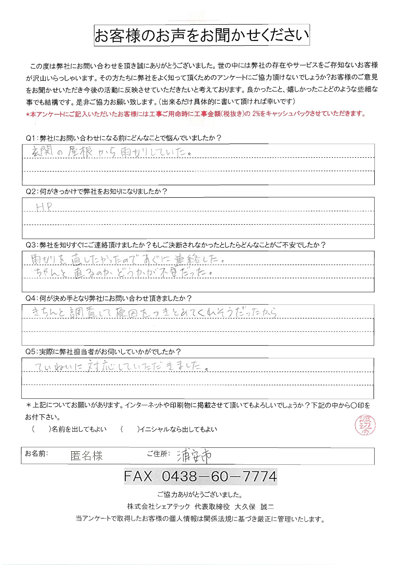 お客様のお声をお聞かせください
この度は弊社にお問い合わせを頂き誠にありがとうございました。世の中には弊社の存在やサービスをご存知ないお客様
が沢山いらっしゃいます。その方たちに弊社をよく知って頂くためのアンケートにご協力頂けないでしょうか？お客様のご意見
をお聞かせいただき今後の活動に反映させていただきたいと考えております。良かったこと、嬉しかったことどのような些細な
事でも結構です。是非ご協力お願い致します。（出来るだけ具体的に書いて頂ければ幸いです）
*本アンケートにご記入いただいたお客様には工事ご用命時に工事金額(税抜き)の2%をキャッシュバックさせていただきます。
Q1：弊社にお問い合わせになる前にどんなことで悩んでいましたか？
玄関の屋根から雨もりしていた。
Q2：何がきっかけで弊社をお知りになりましたか？
HP
Q3：弊社を知りすぐにご連絡頂けましたか？もしご決断されなかったとしたらどんなことがご不安でしたか？
雨もりを直したかったのですぐに連絡した。
ちゃんと直るのかどうかが不安だった。
Q4：何が決め手となり弊社にお問い合わせ頂きましたか？
きちんと調査して原因をつきとめてくれそうだったから
Q5：実際に弊社担当者がお伺いしていかがでしたか？
ていねいに対応していただきました。
＊上記についてお願いがあります。インターネットや印刷物に掲載させて頂いてもよろしいでしょうか？下記の中から〇印を
お付け下さい。
（　）名前を出してもよい　（　）イニシャルなら出してもよい
お名前： 匿名様 ご住所： 浦安市
FAX 0438-60-7774
ご協力ありがとうございました。
株式会社シェアテック 代表取締役 大久保 誠二
当アンケートで取得したお客様の個人情報は関係法規に基づき厳正に管理いたします。